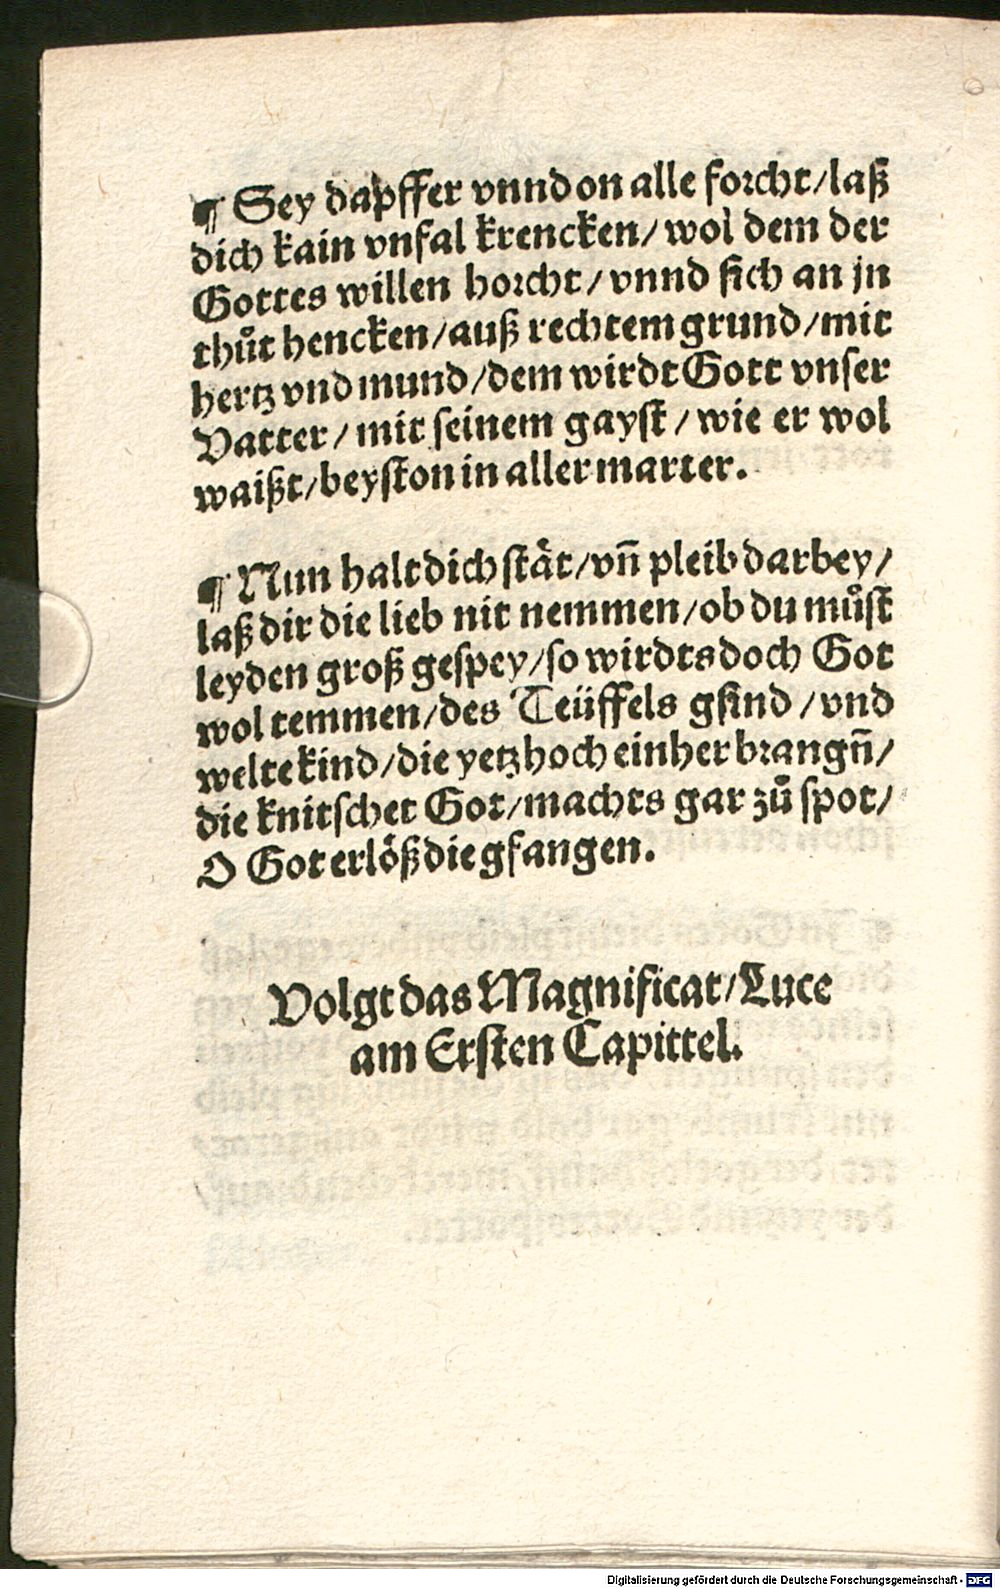 ¶ Sey dapffer vnnd on alle forcht/laß
dich kain vnfal krencken/ wol dem der
Gottes willen horcht/ vnnd sich an jn
thuͦt hencken/auß rechtem grund/mit
hertz vnd mund/dem wirdt Gott vnser
Vatter/ mit seinem gayst/ wie er wol
waißt/beyston in aller marter.
¶ Nun halt dich stät/vn̄ pleib darbey/
laß dir die lieb nit nemmen/ob du muͦst
leyden groß gespey/so wirdts doch Got
wol temmen/des Teüffels gsind/vnd
welte kind/die yetz hoch einher brangn̄/
die knitschet Got/machts gar zuͦ spot/
O Got erlöß die gfangen.
Volgt das Magnificat/Luce
am Ersten Capittel.
Digitalisierung gefördert durch die Deutsche Forschungsgemeinschaft - DFG